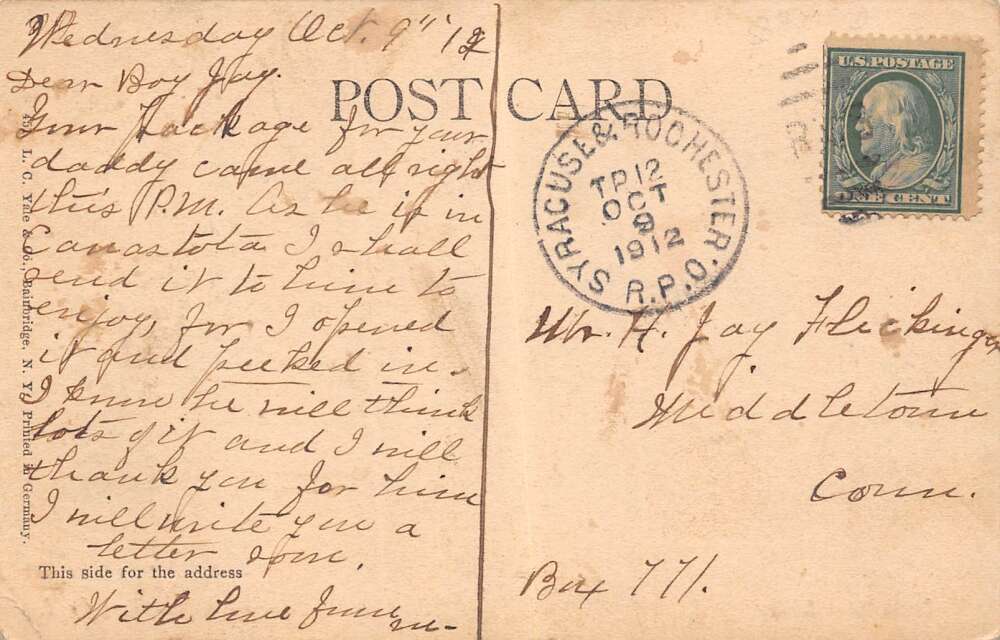 Wednesday Oct. 9" '12
Dear Boy Jay.
Your Package for your
daddy came all right
this P.M. As he is in
Canastota I shall
send it to him to
enjoy, for I opened
it and peeked in.
I know he will think
lots of it and I will
thank you for him
I will write you a
letter soon.
With love from
m-
This side for the address
L. C. Yale & Co., Bainbridge, N. Y. Printed in Germany.
POST CARD
SYRACUSE & ROCHESTER.
TP.12
OCT
9
1912
R.P.O.
U.S. POSTAGE
ONE CENT
Mr. H. Jay Flickinger
Middletown
Conn.
Box 771.